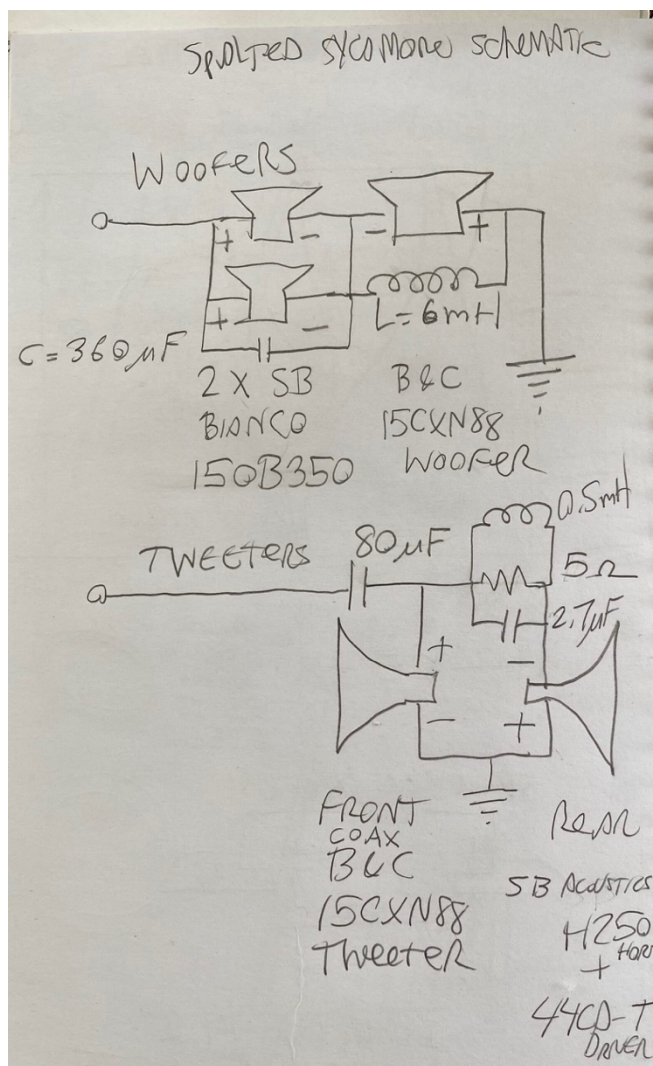 SPALTED SYCAMORE SCHEMATIC
WOOFERS
+ - - +
+ -
L = 6mH
C = 360 µF
2 X SB
BIANCO
15OB350
B&C
15CXN88
WOOFER
TWEETERS
80 µF
0.5mH
5Ω
2.7µF
+ -
- +
FRONT
COAX
B&C
15CXN88
Tweeter
ReAR
SB ACOUSTICS
H250
HORN
+
44CD-T
DRIVER